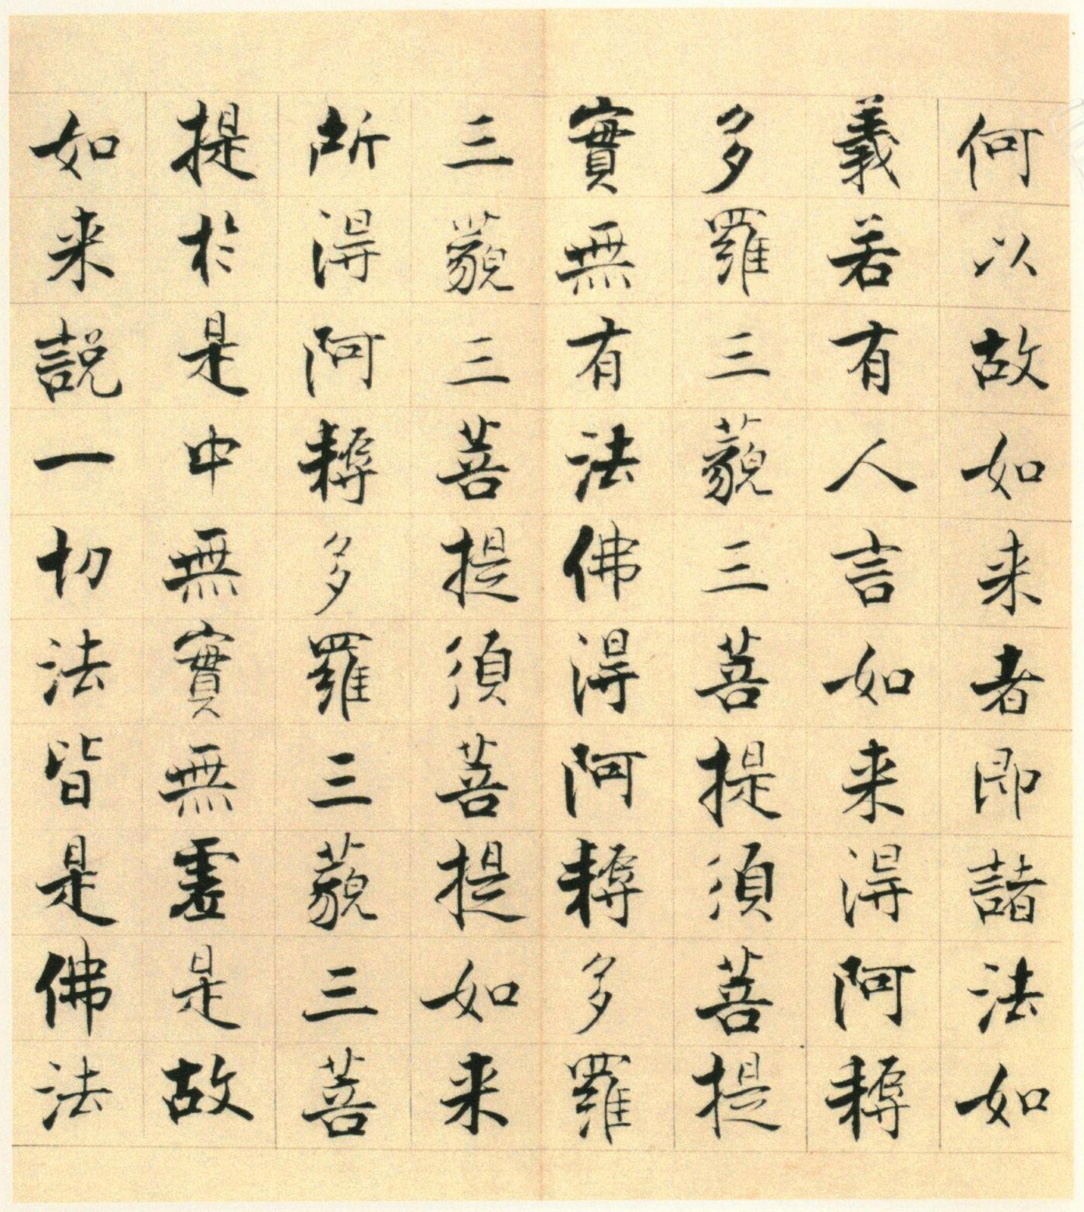 何以故如来者即諸法如
義若有人言如来得阿耨
多羅三藐三菩提須菩提
實無有法佛得阿耨多羅
三藐三菩提須菩提如来
所得阿耨多羅三藐三菩
提於是中無實無虛是故
如来説一切法皆是佛法